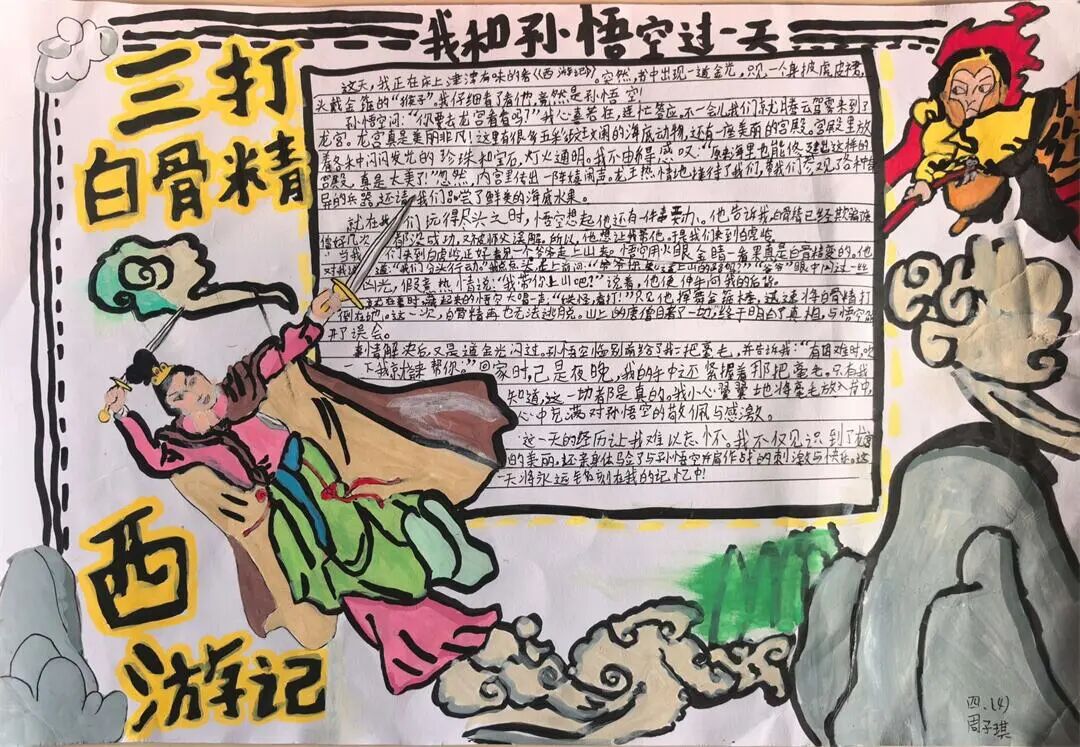 我和孙悟空过一天
三打
白骨精
这天,我正在床上津津有味的看《西游记》。突然,书中出现一道金光,只见一个身披虎皮裙,
头戴金箍的“猴子”,我仔细看了看他,竟然是孙悟空!
孙悟空问:“你要去龙宫看看吗?”我心喜若狂,连忙答应。不一会儿我们就腾云驾雾来到了
龙宫。龙宫真是美丽非凡!这里有很多五彩斑斓的海底动物,还有一座美丽的宫殿。宫殿里放
着各种闪闪发光的珍珠和宝石,灯火通明。我不由得感叹:“原来海里也能修建出这样的
宫殿,真是太美了!”忽然,内宫里传出一阵嘻闹声。龙王热情地接待了我们,带我们参观了各种怪
异的兵器,还请我们品尝了鲜美的海底水果。
就在我们玩得尽头之时,悟空想起他还有一件事要办。他告诉我,白骨精已经欺骗唐
僧好几次,都没成功,又被师父误解。所以,他想让我帮他。于是我们来到白虎岭。
当我们来到白虎岭正好看见一个爷爷走上山来。悟空用火眼金睛一看果真是白骨精变的。他
对我说道:“我们分头行动。”我点点头,走上前问:“爷爷你知道上山的路吗?”“爷爷”眼中闪过一丝
凶光,假装热情说:“我带你上山吧?”说着,他便伸手向我的后背。
在这时,藏起来的悟空大喝一声:“妖怪看打!”只见他挥舞金箍棒,迅速将白骨精打
倒在地。这一次,白骨精再也无法逃脱。山上的唐僧目睹了一切,终于明白了真相,与悟空解
开了误会。
事情解决后,又是一道金光闪过。孙悟空临别前给了我一把毫毛,并告诉我:“有困难时,吹
一下我就来帮你。”回家时,已是夜晚,我的手中还紧握着那把毫毛。只有我
知道,这一切都是真的。我小心翼翼地将毫毛放入背中,
心中充满对孙悟空的敬佩与感激。
这一天的经历让我难以忘怀。我不仅见识到了龙宫
的美丽,还亲身体验了与孙悟空并肩作战的刺激与快乐。这
一天将永远铭刻在我的记忆中!
西
游记
四.(4)
周子琪